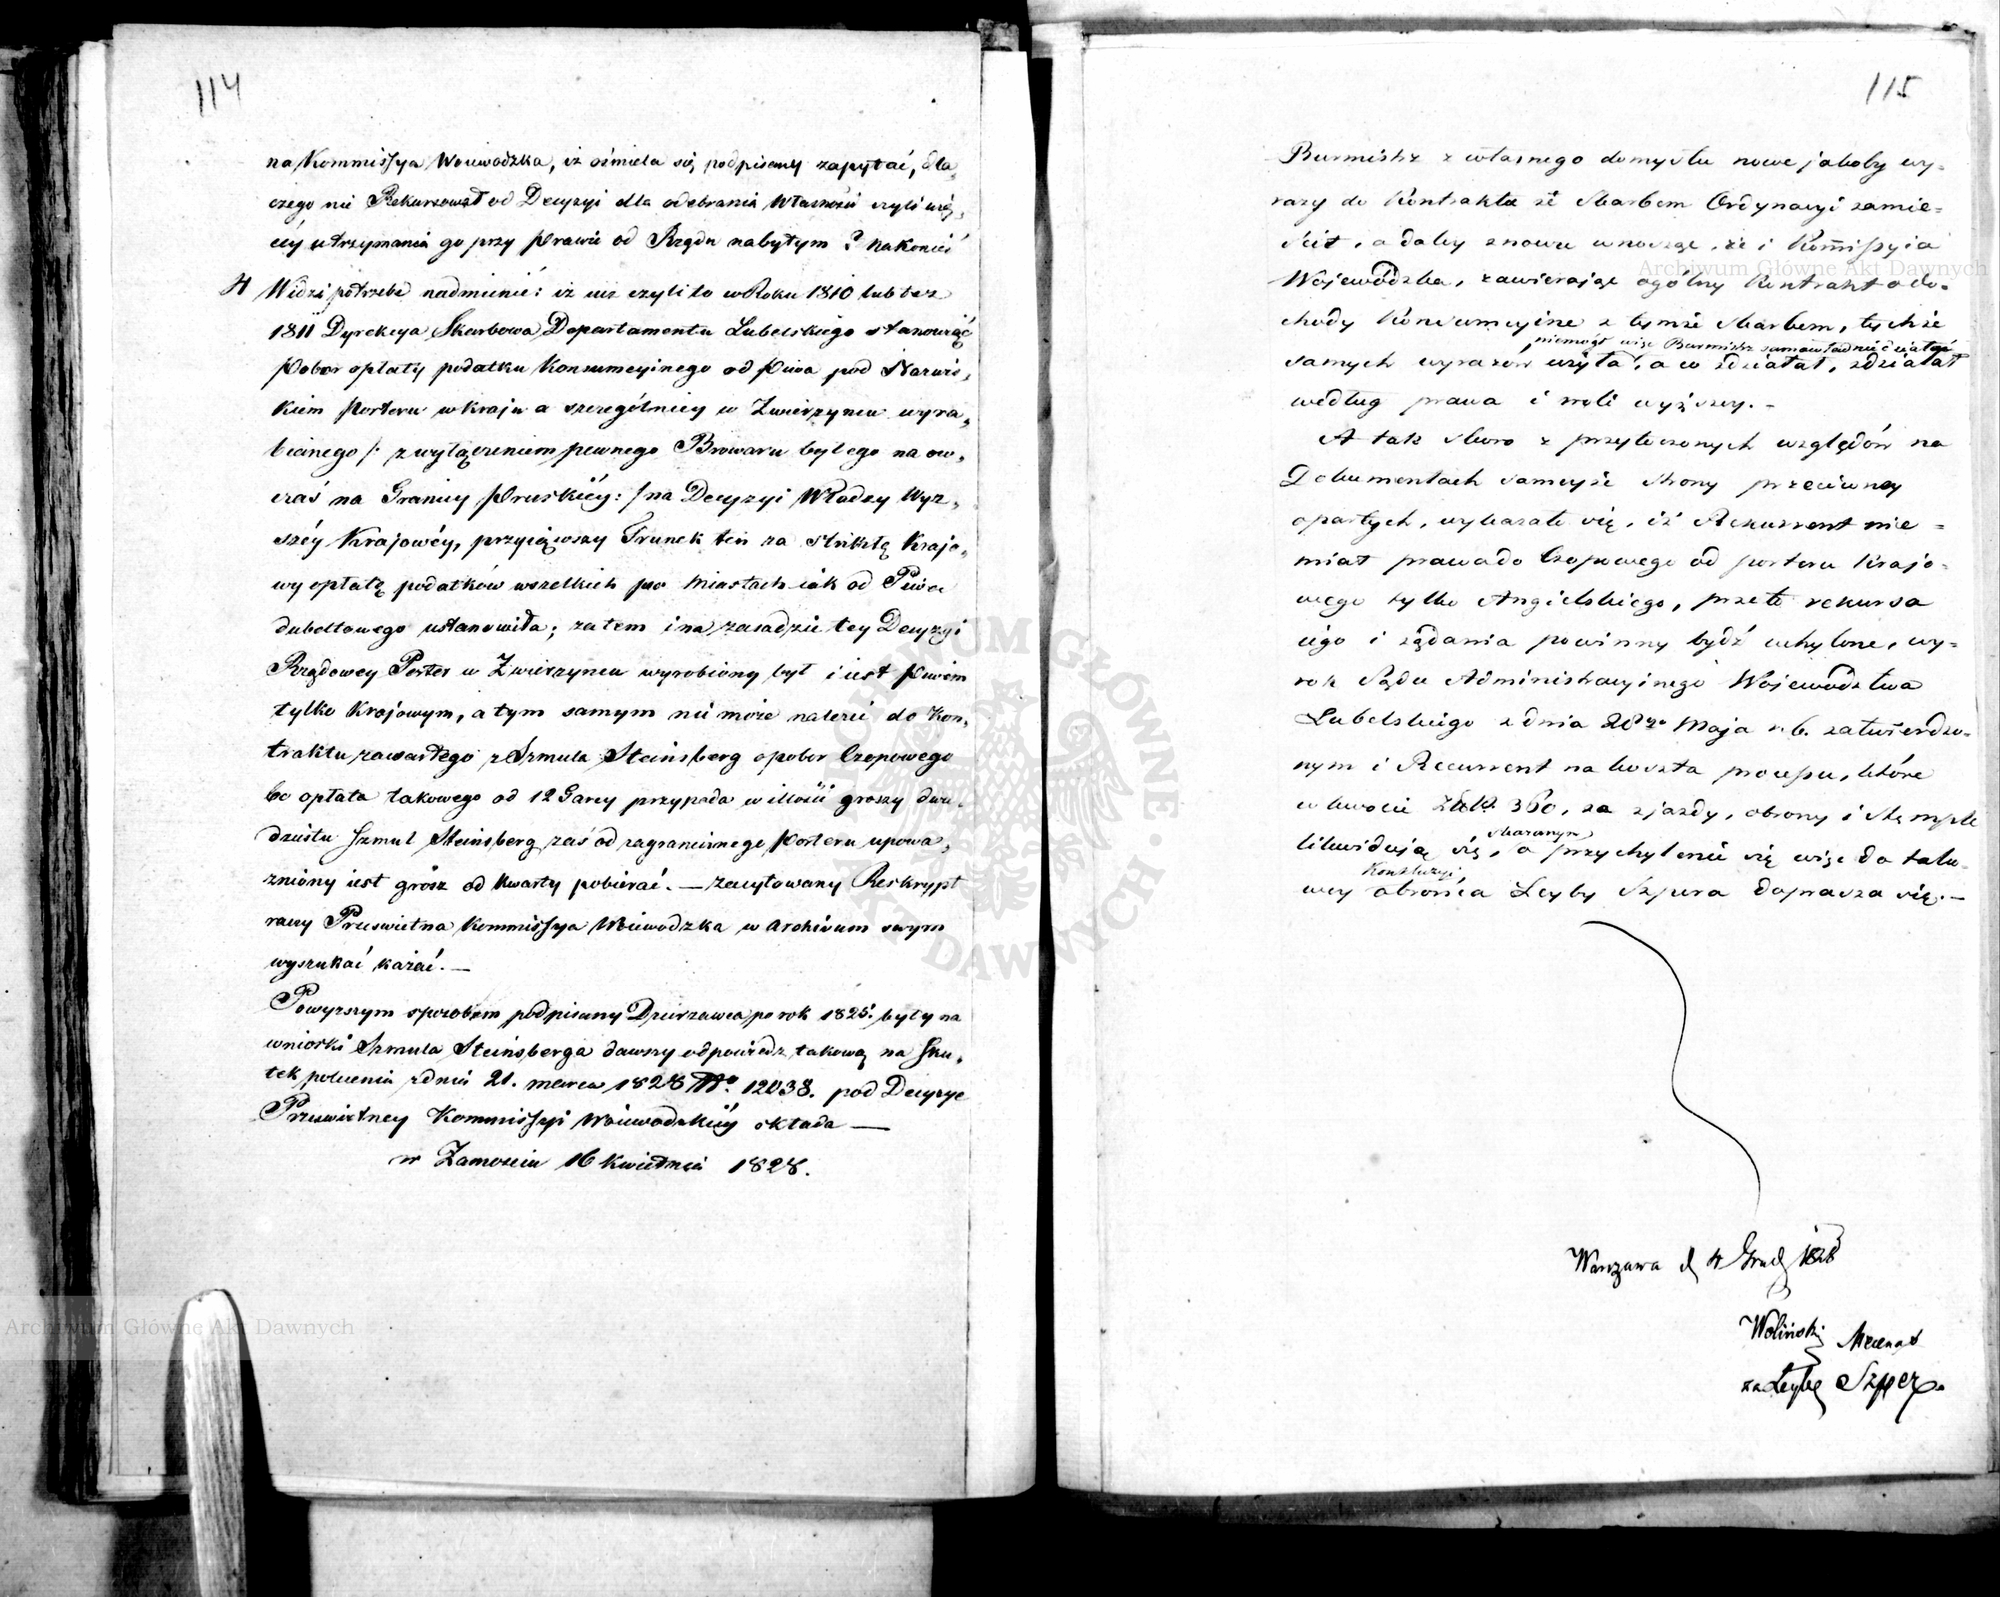 114
na Kommissya Woiewodzka, iż ośmiela się podpisany zapytać, dla„
czego nie Rekursował od Decyzyi dla odebrania Własności czyli wię„
céy utrzymania go przy Prawie od Rządu nabytym? nakonieć
4 Widzi potrzebę nadmienić: iż iuż czyli to w Roku 1810 lub też
1811 Dyrekcya Skarbowa Departamentu Lubelskiego stanowiąć
Pobor opłaty podatku Konsumcyinego od Piwa pod Nazwis„
kiem Porteru w kraju a szczególniey w Zwierzyncu wyra„
bianego /: z wyłączeniem pewnego Browaru byłego na ow„
czaś na Granicy Pruskiéy: / na Decyzyi Władzy Wyż„
széy Krajowéy, przyiąwszy Trunek ten za Krajo„
wy opłatę podatków wszelkich po Miastach iak od Piwa
dubeltowego ustanowiła; zatem i na zasadzie tey Decyzyi
Rządowey Porter w Zwierzyncu wyrobiony był i iest Piwem
tylko Krajowym, a tym samym nie może należeć do Kon„
traktu zawartego z Szmula Steinsberg o pobor Czopowego
bo opłata takowego od 12 Garcy przypada w illości groszy dwu„
dziestu Szmul Steinsberg zaś od zagranicznego Porteru upowa„
żniony iest grosz od Kwarty pobierać. — zacytowany Reskrypt
raczy Prześwietna Kommissya Woiewodzka w Archivum swym
wyszukać kazać. —
Powyższym sposobem podpisany Dzierzawca po rok 1825. były na
wnioski Szmula Steinsberga dawny odpowiedz takową na sku„
tek polecenia z dnia 21. marca 1828 No. 12038. pod Decyzye
Prześwietney Kommissyi Woiewodzkiéy składa —
w Zamosciu 16 Kwietnia 1828.
115
Burmistrz z własnego domysłu nowe jakoby wy-
razy do Kontraktu ze Skarbem Ordynacyi zamie=
ścił, a daley znowu wnosząc, że i Kommissyia
Wojewódzka, zawierając ogólny Kontrakt o do-
chody Konsumcyine z tymże Skarbem, tychże
niemógł więc Burmistrz samowładnie działać
samych wyrazów użyła, a co zdziałał, zdziałał
według prawa i woli wyższey. -
A tak skoro z przytoczonych względów na
Dokumentach samejże strony przeciwney
opartych, wykazało się, iż Rekurrent nie =
miał prawa do Czopowego od porteru Krajo-
wego tylko Angielskiego, przeto rekursa
iego i żądania powinny bydź uchylone, wy-
rok Sądu Administracyinego Województwa
Lubelskiego z dnia 28go Maja r. b. zatwierdzo-
nym i Recurrent na koszta procesu, które
w kwocie Złp 360, za zjazdy, obrony i stemple
likwidują się, skazanym,
o przychylenie się więc do tako-
wey Konkluzyi obrońca Leyby Szpera doprasza się. —
Warszawa d 4 Grud 1828
Woliński Mecenas
za Leybę Szper
Archiwum Główne Akt Dawnych
Archiwum Główne Akt Dawnych
ARCHIWUM GŁÓWNE AKT DAWNYCH